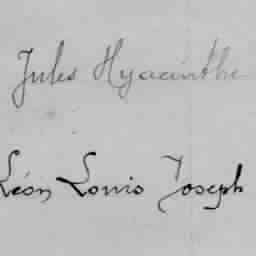 Jules Hyacinthe
Léon Louis Joseph